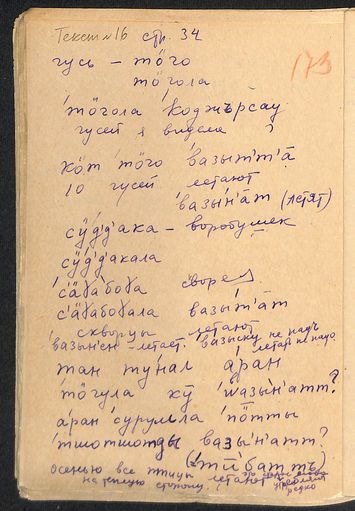 Текст №16 стр. 34
173
гусь – тӧго
тӧгола
'тӧгола 'коджърсау
гусей я видела ?
кӧт 'тӧго 'вазыт'т'ā
10 гусей летают
'вазы'н'ат (летят)
сӱд'д'ака – воробушек
сӱд'д'акала
'с'āɣ'абоɣа
'с'āɣабоɣала вазы'т'āт
скворцы летают
'вазы'н'сн – летает. 'вазыку не надъ
летать не надо
тан ту'нал 'аран
'тӧгула кӱ 'вазы'н'атт?
а'ран 'сурула 'пӧтты
'тшотшотды вазы'н'атт?
('тӣбаттъ)
осенью все птицы летают
на теплую сторону,
редко